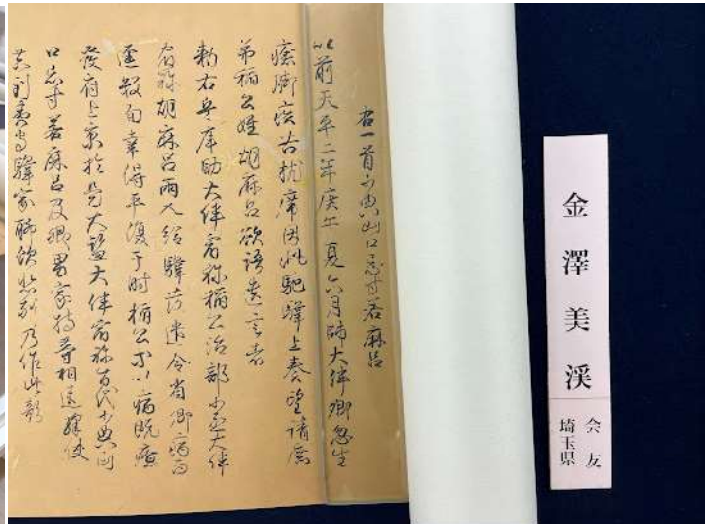 金澤美渓
会友
埼玉県
右一首少典山口忌寸若麻呂
以前天平二年庚午夏六月帥大伴卿忽生
瘡脚疾苦枕席因此馳驛上奏望請庶
弟稲公姪胡麻呂欲語遺言者
勅右兵庫助大伴宿祢稲公治部少丞大伴
宿祢胡麻呂兩人給驛發遣令省卿病而
逕數旬幸得平復于時稲公等以病既療
發府上京於是大監大伴宿祢百代少典山
口忌寸若麻呂及卿男家持等相送驛使
共到夷守驛家聊飲悲別乃作此歌